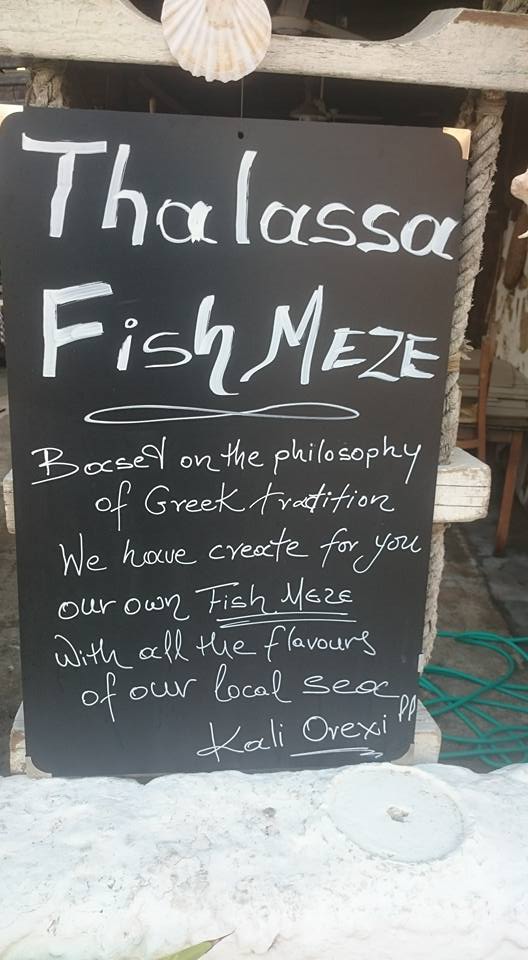 Thalassa
Fish MEZE
Based on the philosophy
of Greek tradition
We have create for you
our own Fish MEZE
With all the flavours
of our local sea
Kali Orexi !!